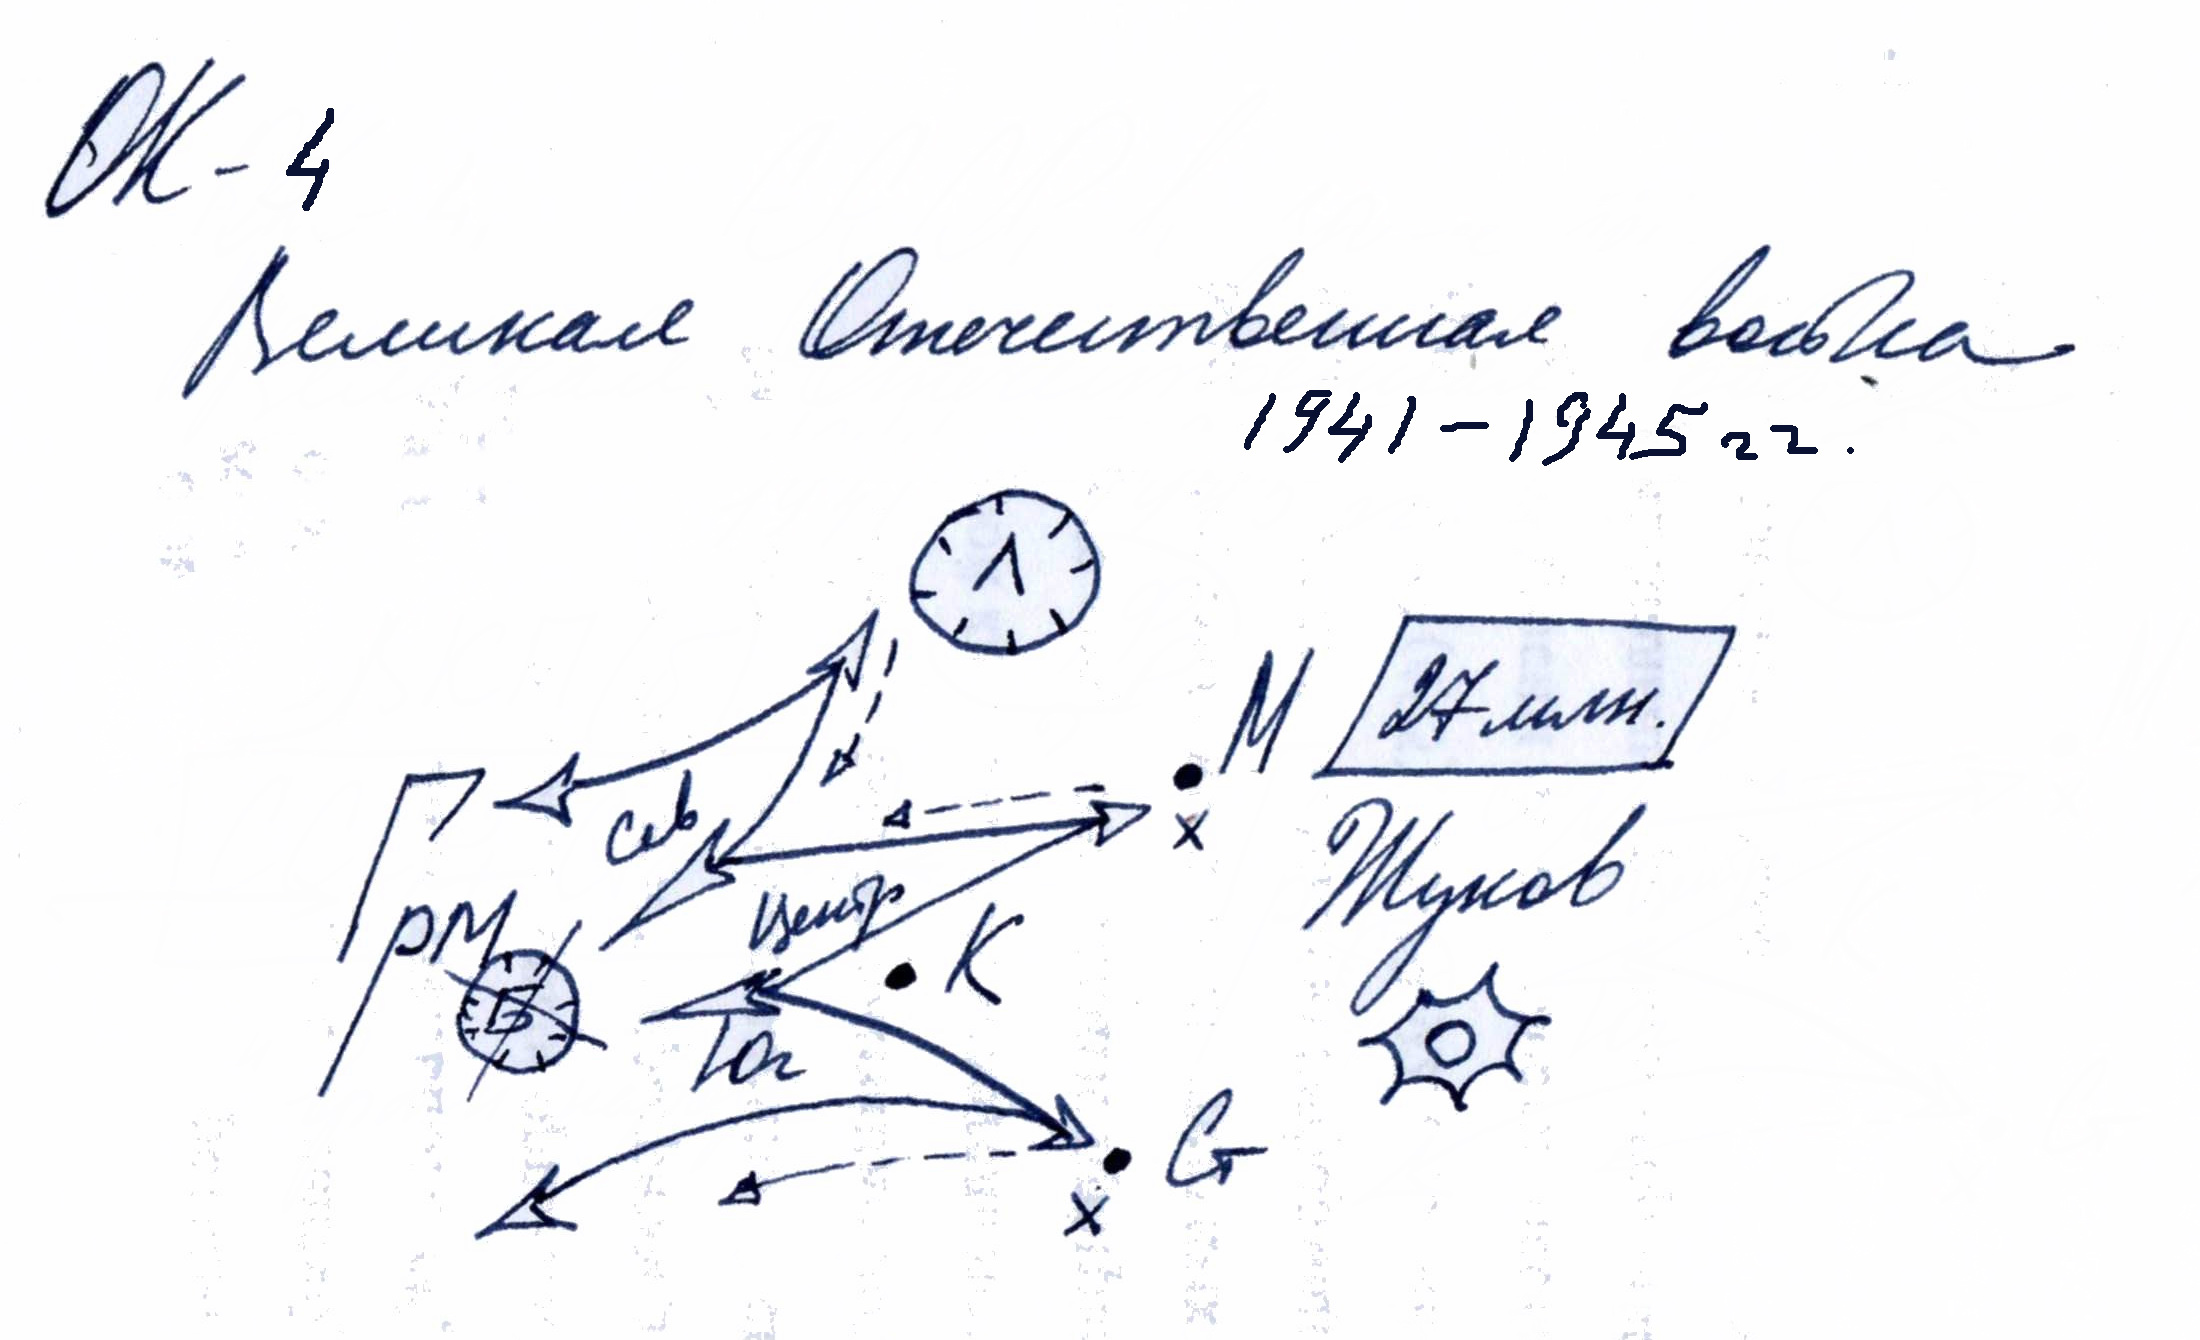 ОК-4
Великая Отечественная война
1941-1945 гг.
Л
М
27 млн.
Сев
х
Жуков
Центр
РМ
К
Б
Юг
Ст
х